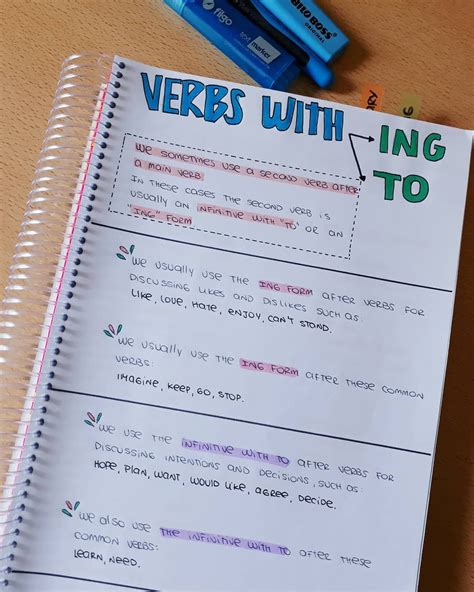 BiLo BOSS
ORIGINAL
filgo
text marker
VERBS WITH
ING
TO
WE SOMETIMES USE A SECOND VERB AFTER
A MAIN VERB
IN THESE CASES THE SECOND VERB IS
USUALLY AN INFINITIVE WITH "TO" OR AN
"ING" FORM
WE USUALLY USE THE ING FORM AFTER VERBS FOR
DISCUSSING LIKES AND DISLIKES SUCH AS:
LIKE, LOVE, HATE, ENJOY, CAN'T STAND.
WE USUALLY USE THE ING FORM AFTER THESE COMMON
VERBS:
IMAGINE, KEEP, GO, STOP.
WE USE THE INFINITIVE WITH TO AFTER VERBS FOR
DISCUSSING INTENTIONS AND DECISIONS, SUCH AS:
HOPE, PLAN, WANT, WOULD LIKE, AGREE, DECIDE.
WE ALSO USE THE INFINITIVE WITH TO AFTER THESE
COMMON VERBS:
LEARN, NEED.